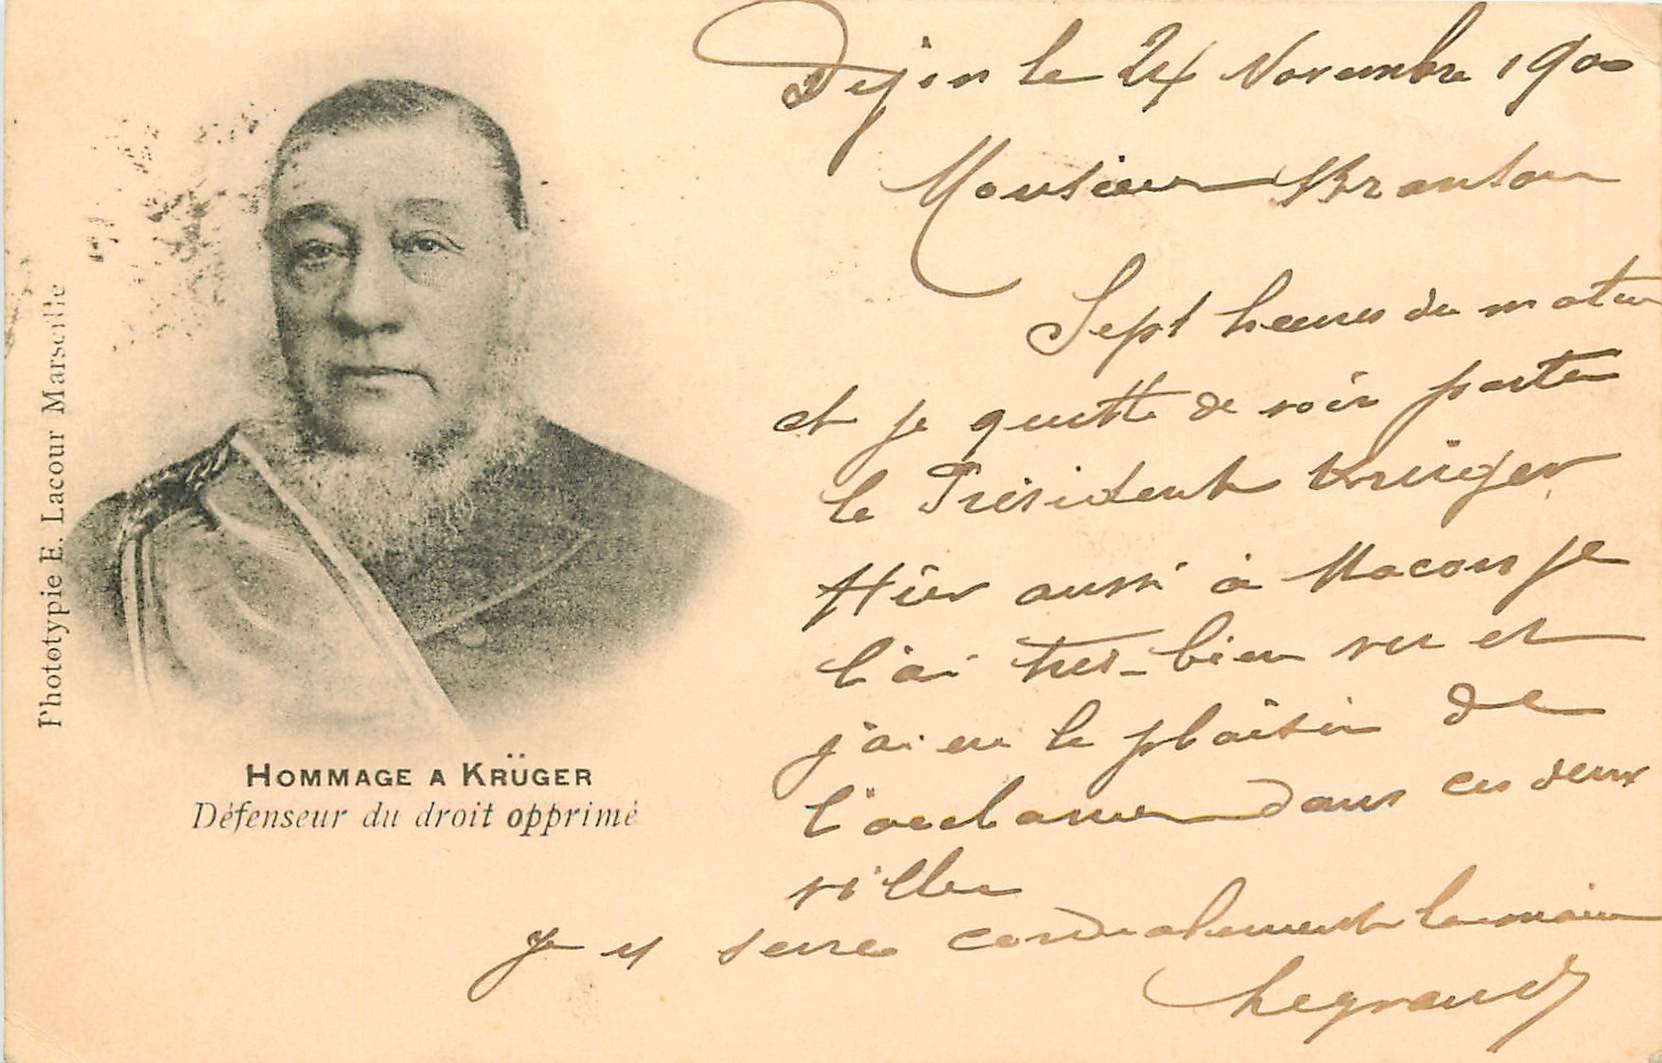 Phototypie E. Lacour Marseille
HOMMAGE A KRÜGER
Défenseur du droit opprimé
Dijon le 24 Novembre 1900
Monsieur
Sept heures du matin
et je quitte de voir partir
le Président Krüger
Hier aussi à Macon je
l'ai très-bien vu et
j'ai eu le plaisir de
l'acclamer dans ces deux
villes
Je serre cordialement la main
Legrand